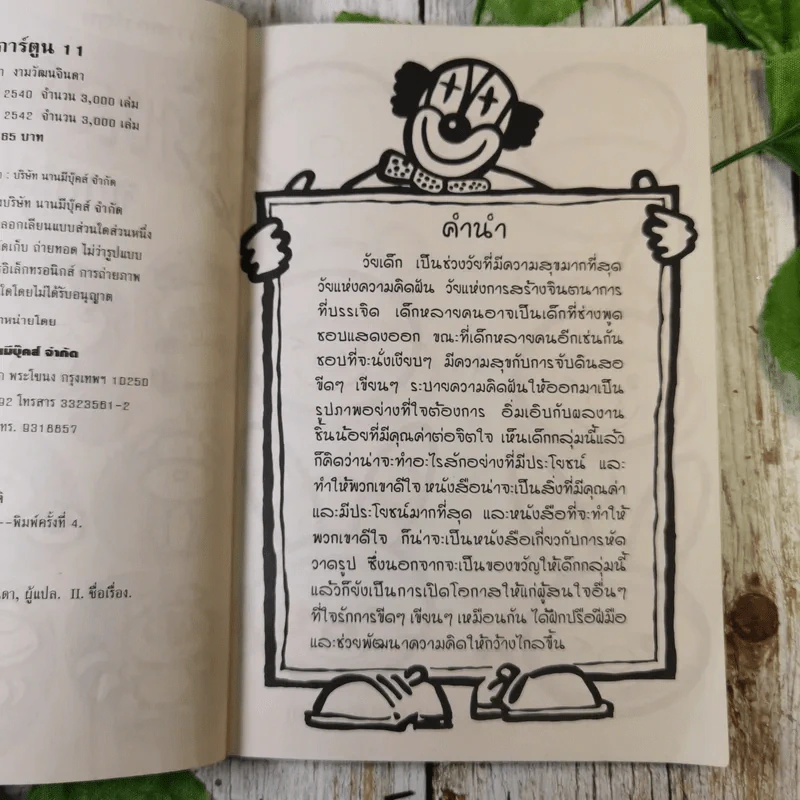 การ์ตูน 11
งามวัฒนจินดา
2540 จำนวน 3,000 เล่ม
2542 จำนวน 3,000 เล่ม
85 บาท
: บริษัท นานมีบุ๊คส์ จำกัด
บริษัท นานมีบุ๊คส์ จำกัด
ลอกเลียนแบบส่วนใดส่วนหนึ่ง
จัดเก็บ ถ่ายทอด ไม่ว่ารูปแบบ
อิเล็กทรอนิกส์ การถ่ายภาพ
ใดโดยไม่ได้รับอนุญาต
หน่ายโดย
มีบุ๊คส์ จำกัด
พระโขนง กรุงเทพฯ 10250
92 โทรสาร 3323561-2
ทร. 9316657
--พิมพ์ครั้งที่ 4.
ผู้แปล. II. ชื่อเรื่อง.
คำนำ
วัยเด็ก เป็นช่วงวัยที่มีความสุขมากที่สุด
วัยแห่งความคิดฝัน วัยแห่งการสร้างจินตนาการ
ที่บรรเจิด เด็กหลายคนอาจเป็นเด็กที่ช่างพูด
ชอบแสดงออก ขณะที่เด็กหลายคนอีกเช่นกัน
ชอบที่จะนั่งเงียบๆ มีความสุขกับการจับดินสอ
ขีดๆ เขียนๆ ระบายความคิดฝันให้ออกมาเป็น
รูปภาพอย่างที่ใจต้องการ อิ่มเอิบกับผลงาน
ชิ้นน้อยที่มีคุณค่าต่อจิตใจ เห็นเด็กกลุ่มนี้แล้ว
ก็คิดว่าน่าจะทำอะไรสักอย่างที่มีประโยชน์ และ
ทำให้พวกเขาดีใจ หนังสือน่าจะเป็นสิ่งที่มีคุณค่า
และมีประโยชน์มากที่สุด และหนังสือที่จะทำให้
พวกเขาดีใจ ก็น่าจะเป็นหนังสือเกี่ยวกับการหัด
วาดรูป ซึ่งนอกจากจะเป็นของขวัญให้เด็กกลุ่มนี้
แล้วก็ยังเป็นการเปิดโอกาสให้แก่ผู้สนใจอื่นๆ
ที่ใจรักการขีดๆ เขียนๆ เหมือนกัน ได้ฝึกปรือฝีมือ
และช่วยพัฒนาความคิดให้กว้างไกลขึ้น